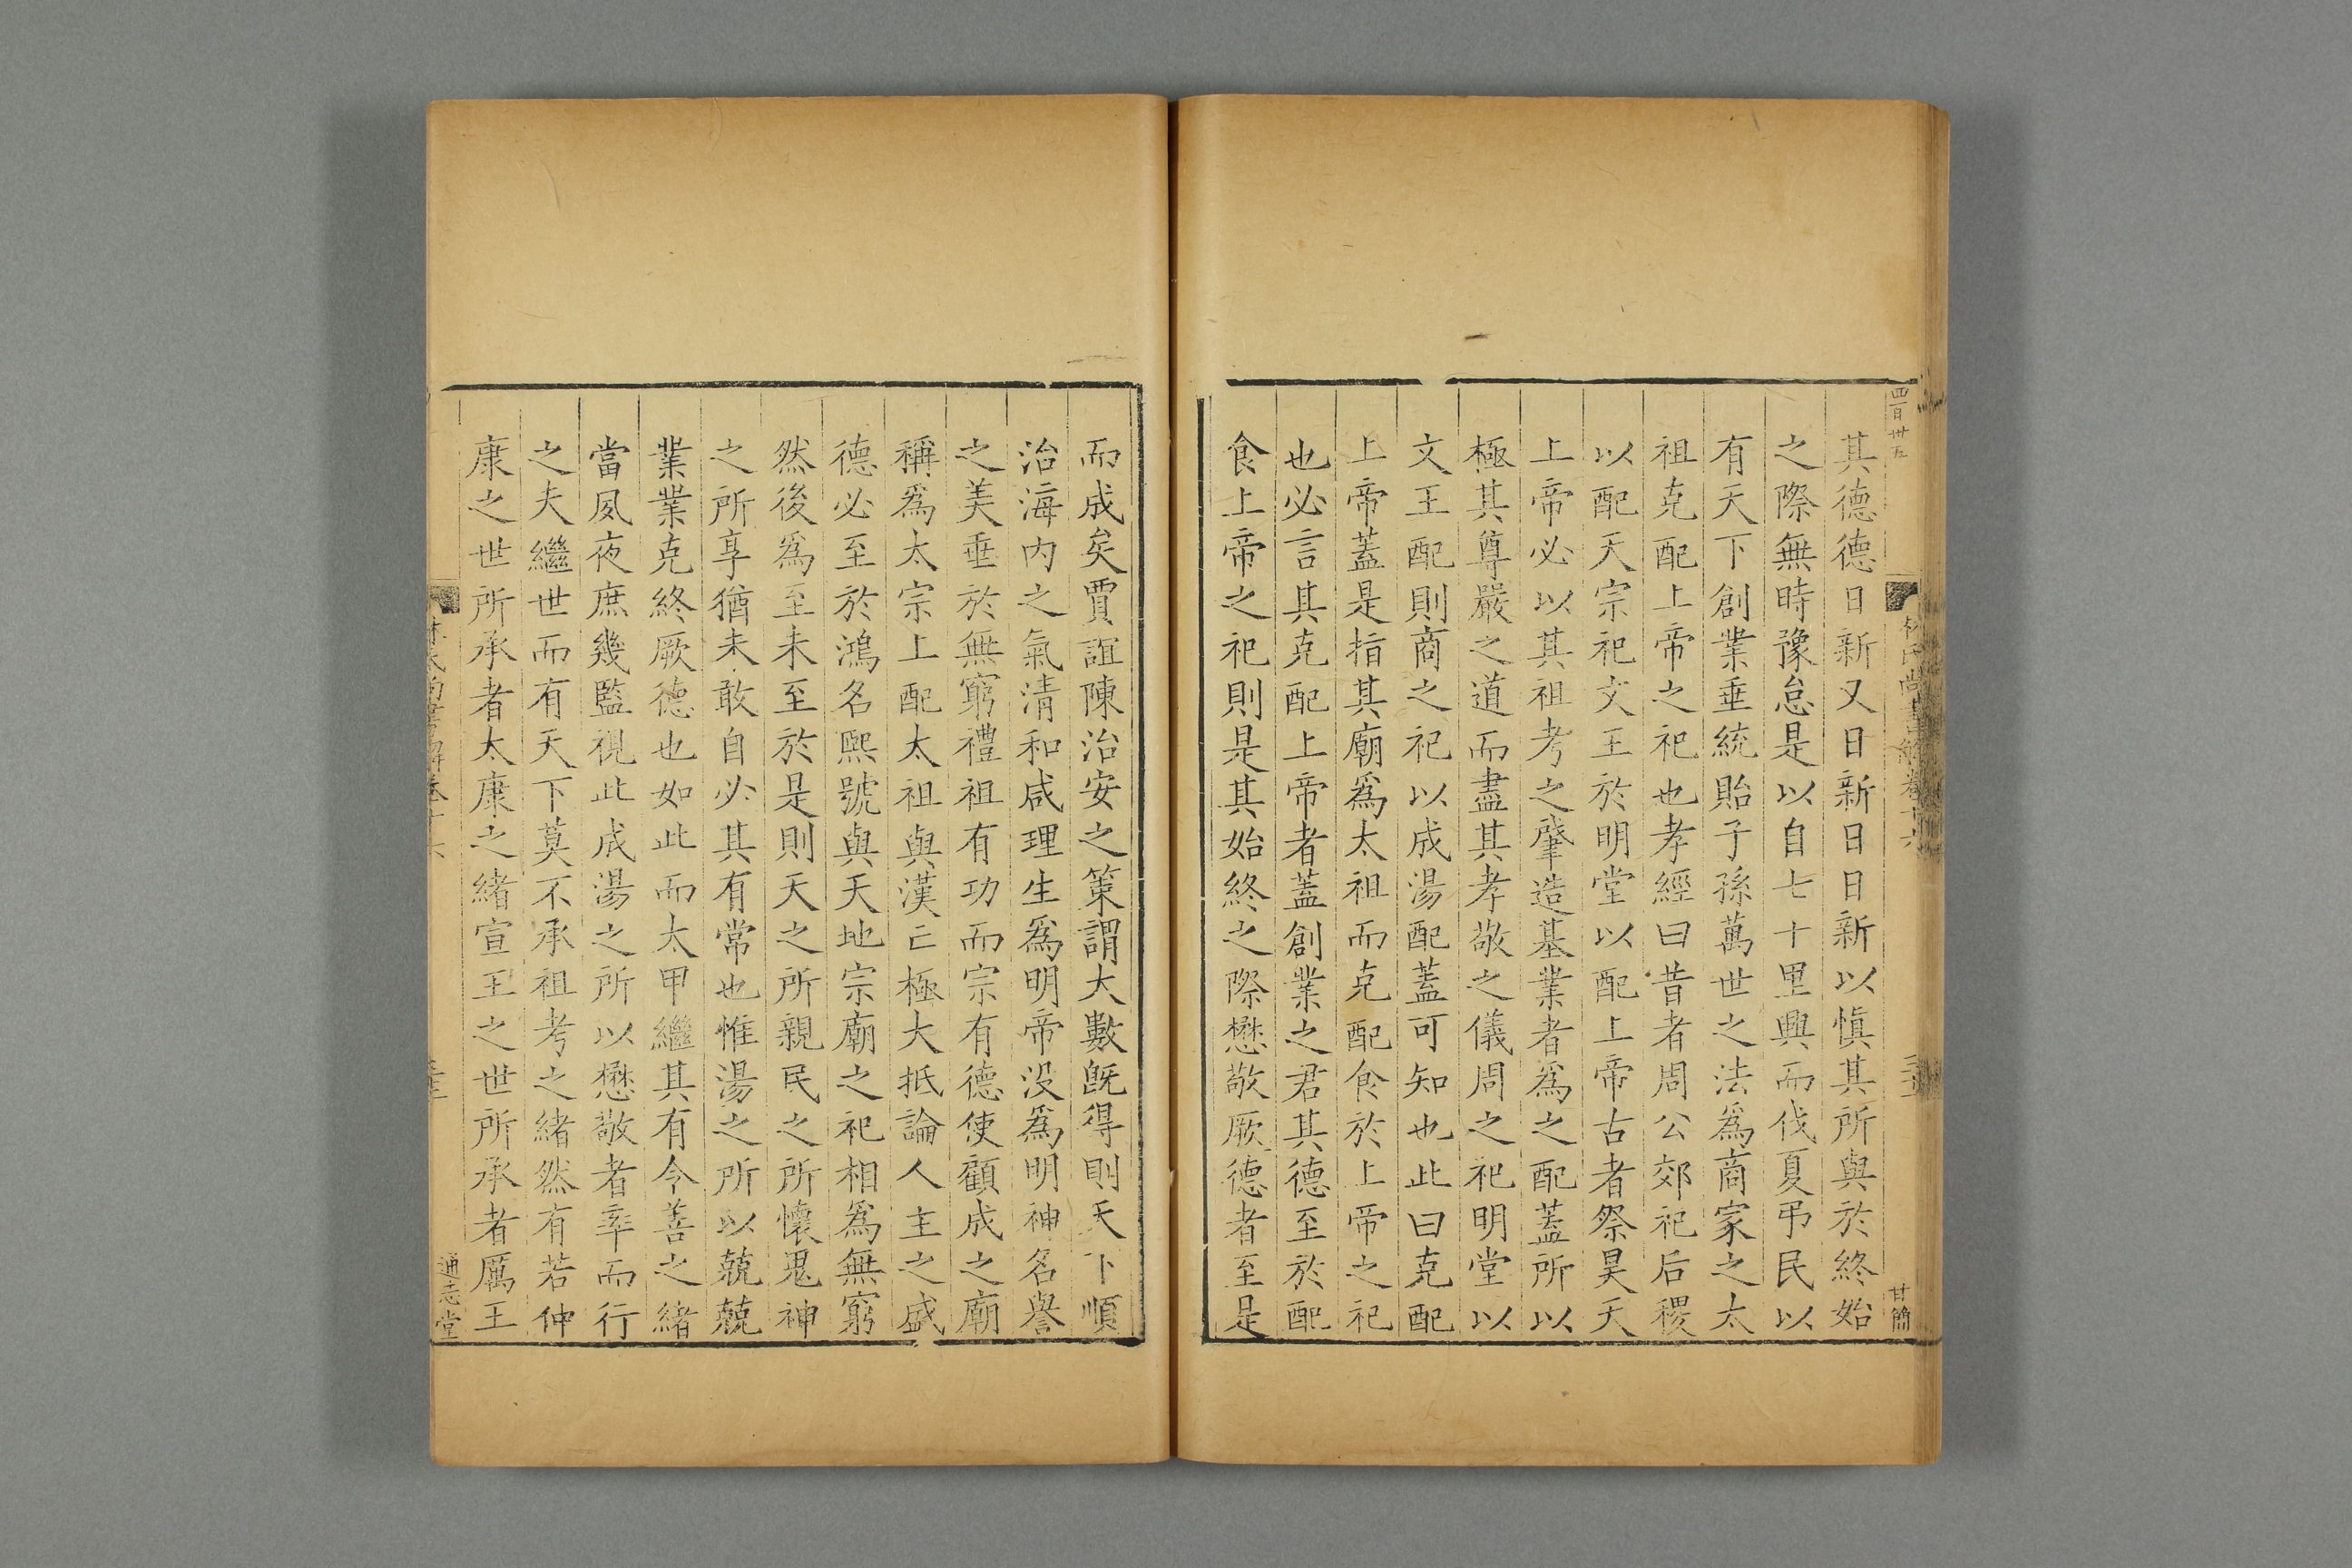 四百卅五
林氏尚書解卷十六
甘簡
其德德日新又日新日日新以愼其所與於終始
之際無時豫怠是以自七十里興而伐夏弔民以
有天下創業垂統貽子孫萬世之法爲商家之太
祖克配上帝之祀也孝經曰昔者周公郊祀后稷
以配天宗祀文王於明堂以配上帝古者祭昊天
上帝必以其祖考之肇造基業者爲之配蓋所以
極其尊嚴之道而盡其孝敬之儀周之祀明堂以
文王配則商之祀以成湯配蓋可知也此曰克配
上帝蓋是指其廟爲太祖而克配食於上帝之祀
也必言其克配上帝者蓋創業之君其德至於配
食上帝之祀則是其始終之際懋敬厥德者至是
而成矣賈誼陳治安之策謂大數旣得則天下順
治海內之氣清和咸理生爲明帝沒爲明神名譽
之美垂於無窮禮祖有功而宗有德使顧成之廟
稱爲太宗上配太祖與漢亡極大抵論人主之盛
德必至於鴻名熙號與天地宗廟之祀相爲無窮
然後爲至未至於是則天之所親民之所懷鬼神
之所享猶未敢自必其有常也惟湯之所以兢兢
業業克終厥德也如此而太甲繼其有令善之緒
當夙夜庶幾監視此成湯之所以懋敬者率而行
之夫繼世而有天下莫不承祖考之緒然有若仲
康之世所承者太康之緒宣王之世所承者厲王
通志堂